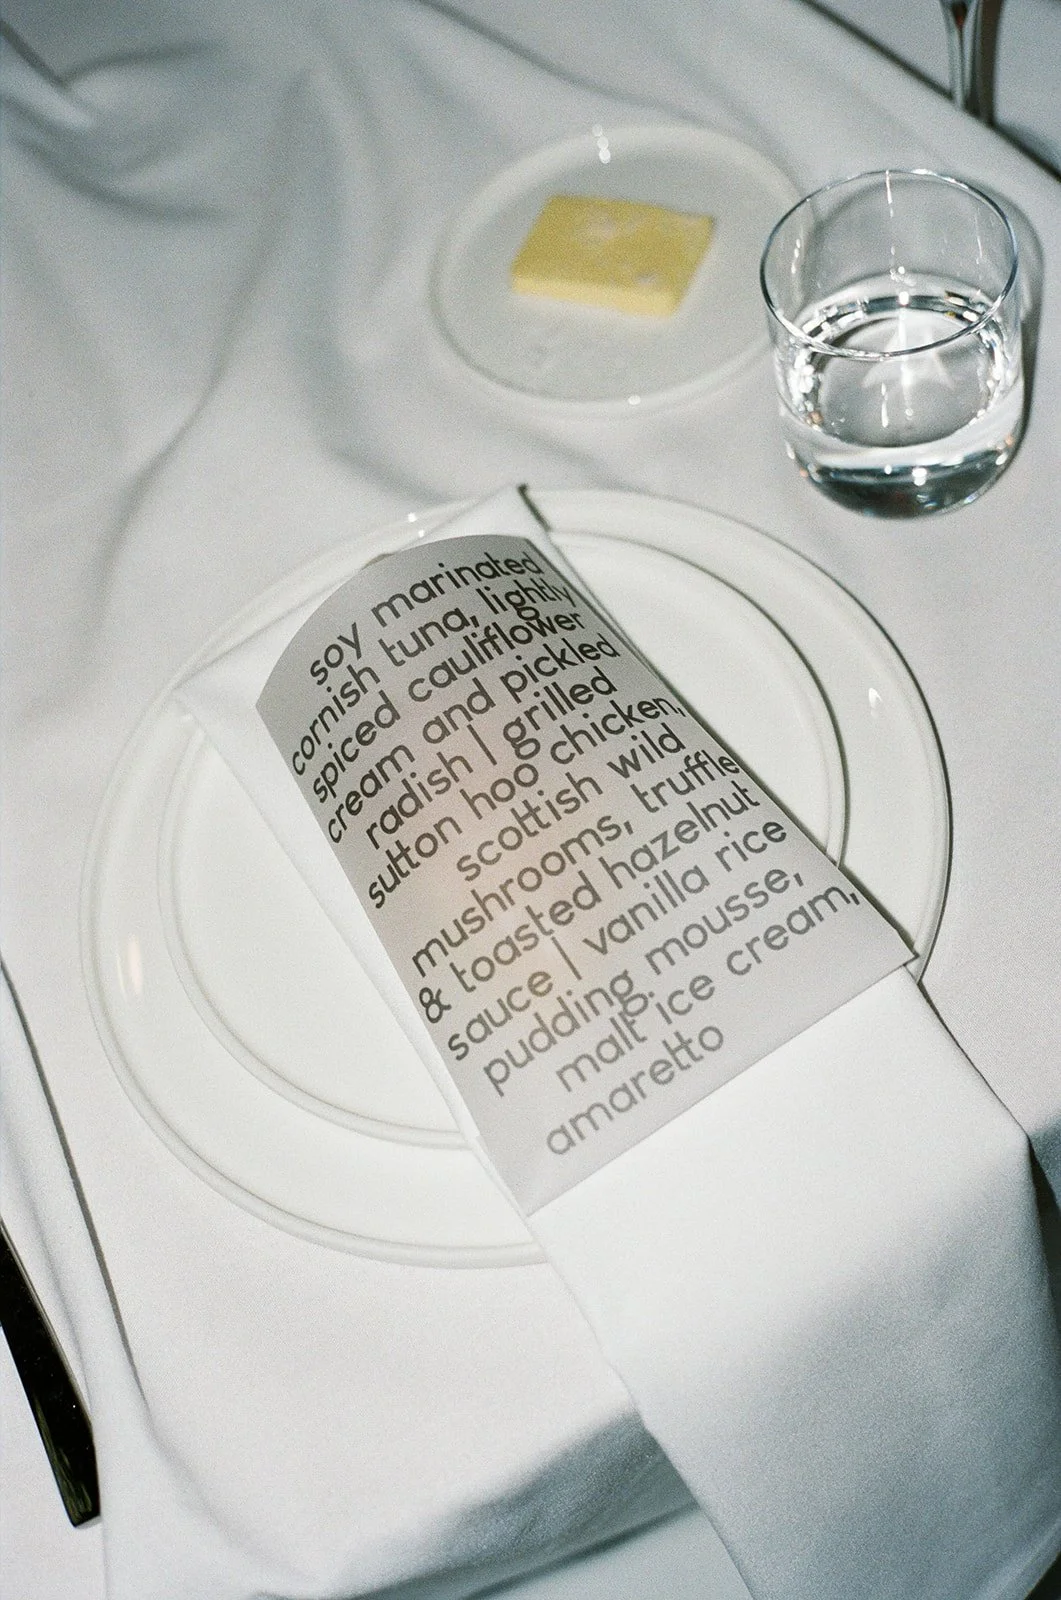 soy marinated
cornish tuna, lightly
spiced cauliflower
cream and pickled
radish | grilled
sutton hoo chicken,
scottish wild
mushrooms, truffle
& toasted hazelnut
sauce | vanilla rice
pudding mousse,
malt ice cream,
amaretto